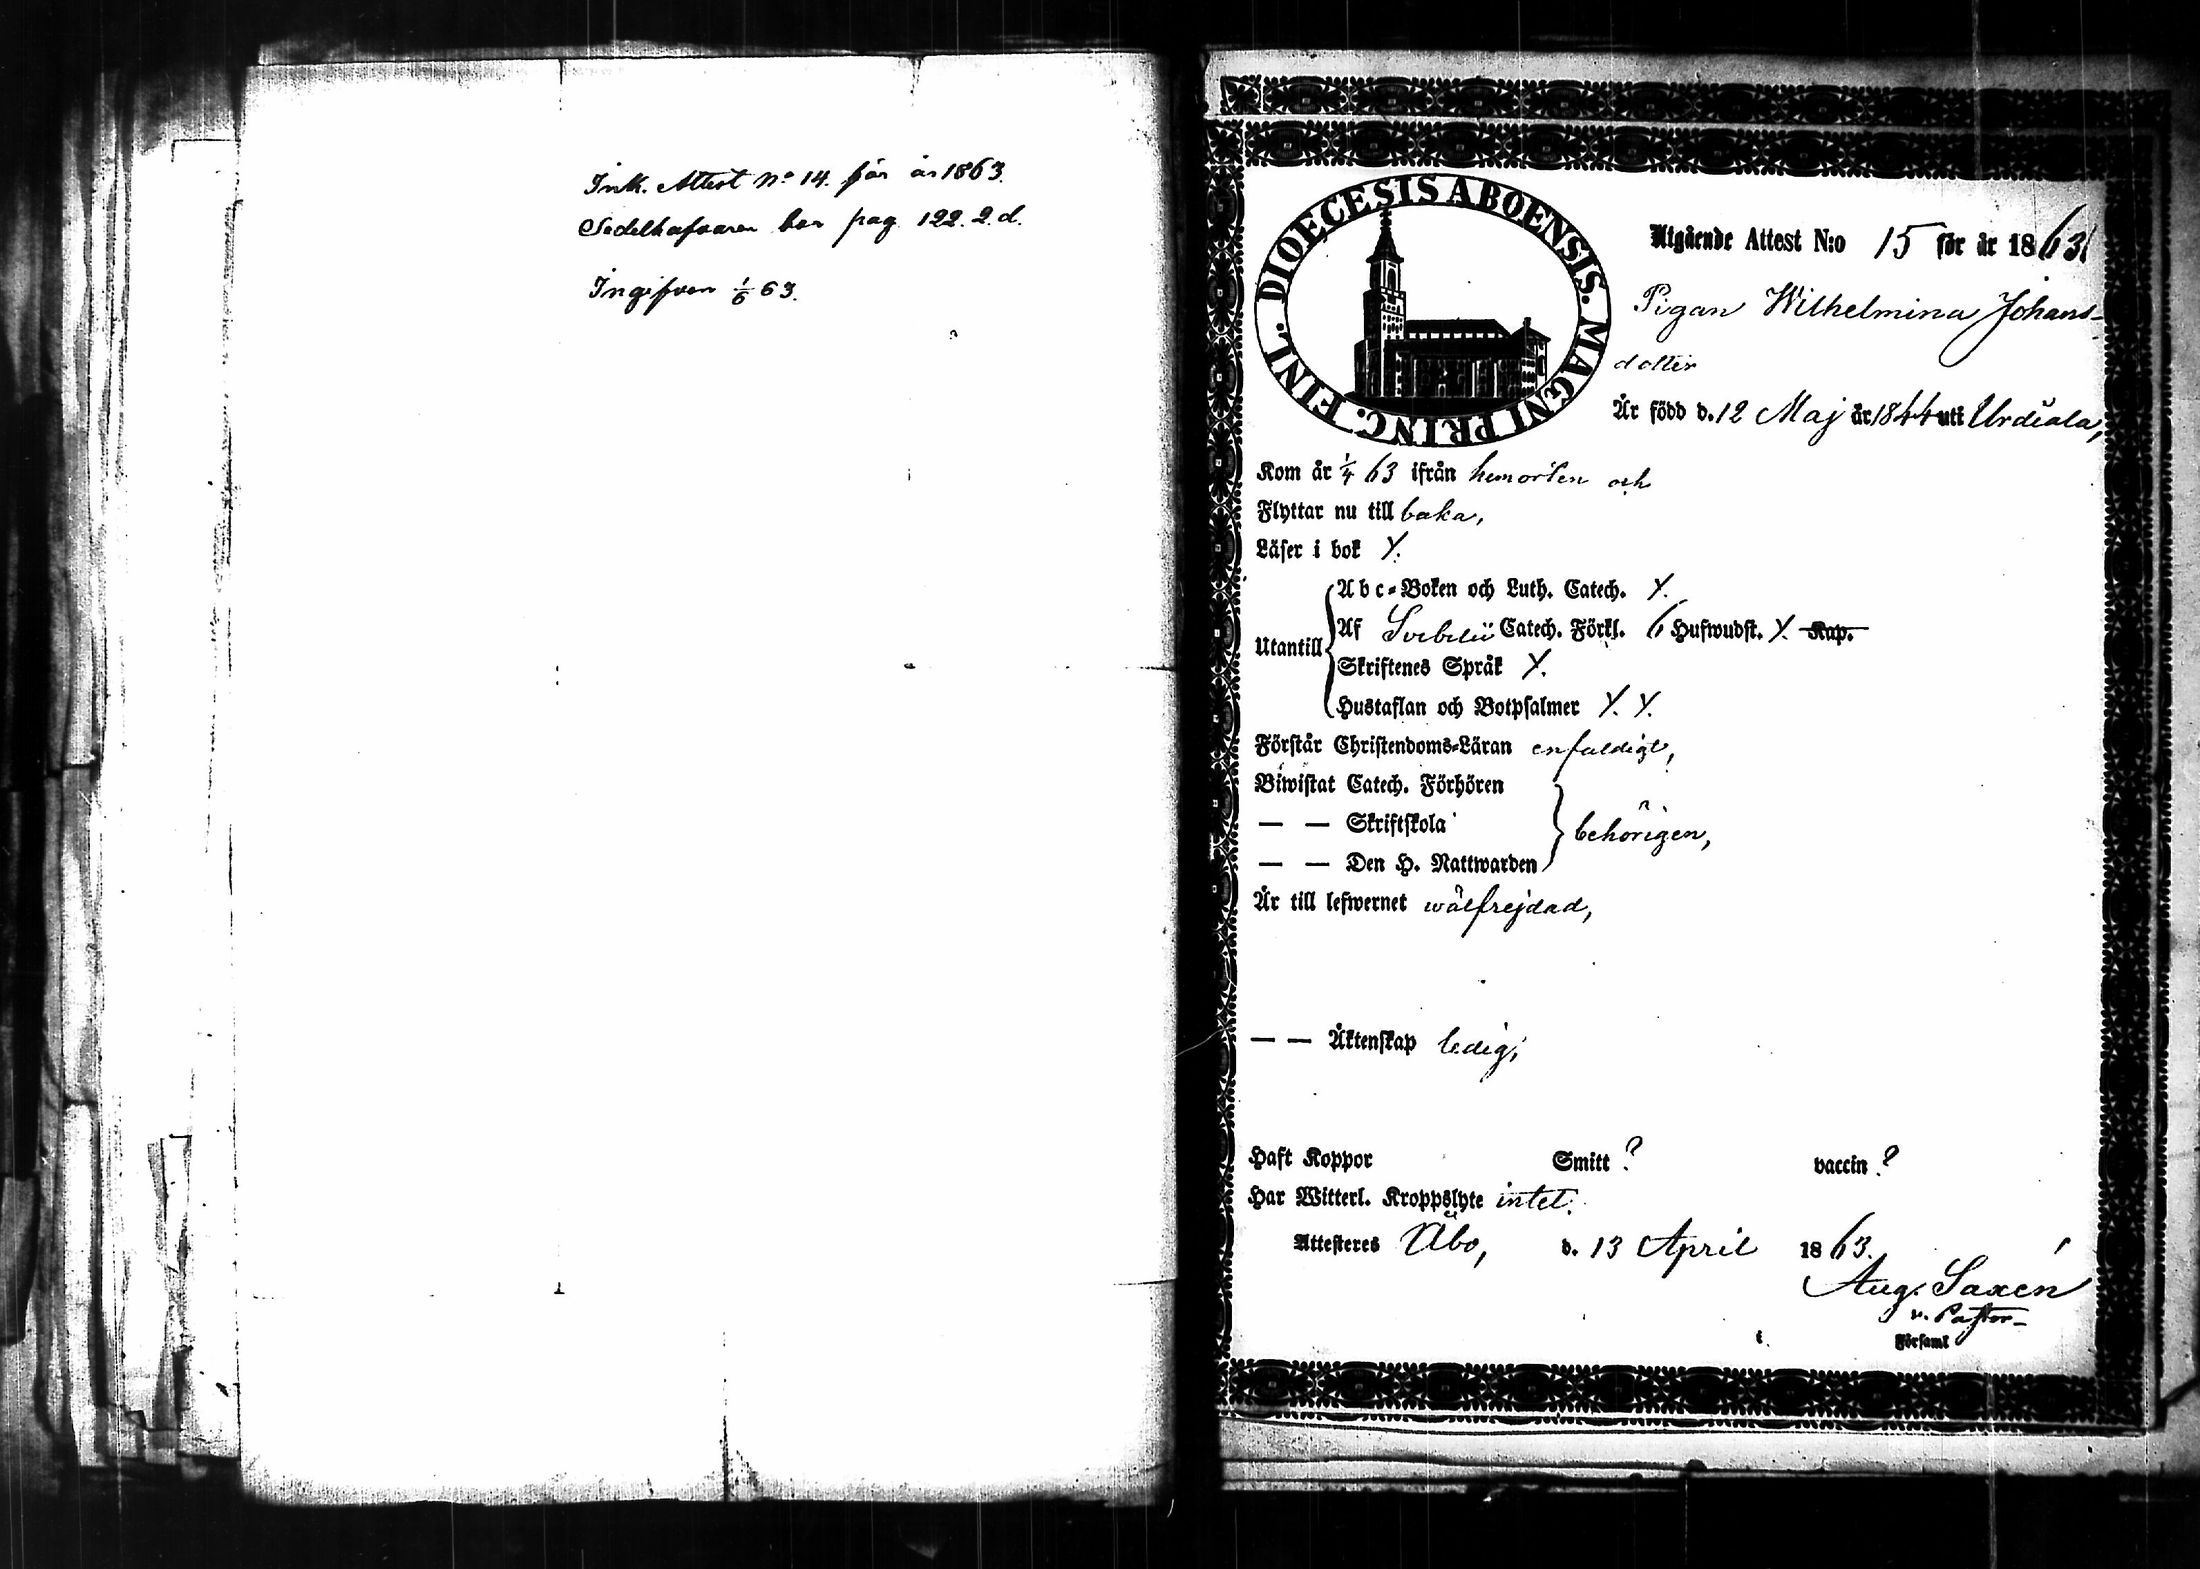 Ink. Attest No 14. för år 1863.
Sedelhafvaren bor pag 122. 2. d.
Ingifven 1/6 63.
DIOECESIS ABOENSIS. MAGNI PRINC. FINL.
Utgående Attest N:o 15 för år 1863.
Pigan Wilhelmina Johans-
dotter
Är född d. 12 Maj år 1844 uti Urdiala,
Kom år 1/4 63 ifrån hemorten och
Flyttar nu till baka,
Läser i bok Y.
Utantill
Abc-Boken och Luth. Catech. Y.
Af Svebelii Catech. Förkl. 6 Hufwudst. Y. Kap.
Skriftenes Språk Y.
Hustaflan och Botpsalmer Y. Y.
Förstår Christendoms-Läran enfaldigt,
Biwistat Catech. Förhören
— — Skriftskola
behörigen,
— — Den H. Nattwarden
Är till lefwernet wälfrejdad,
— — Äktenskap ledig,
Haft Koppor Smitt ? vaccin ?
Har Witterl. Kroppslyte intet.
Attesteres Åbo, d. 13 April 1863.
Aug. Saxén
v. Pastor
i Församl